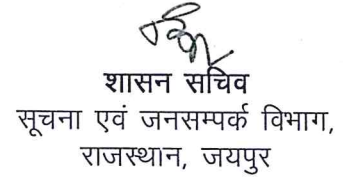 शासन सचिव
सूचना एवं जनसम्पर्क विभाग,
राजस्थान, जयपुर